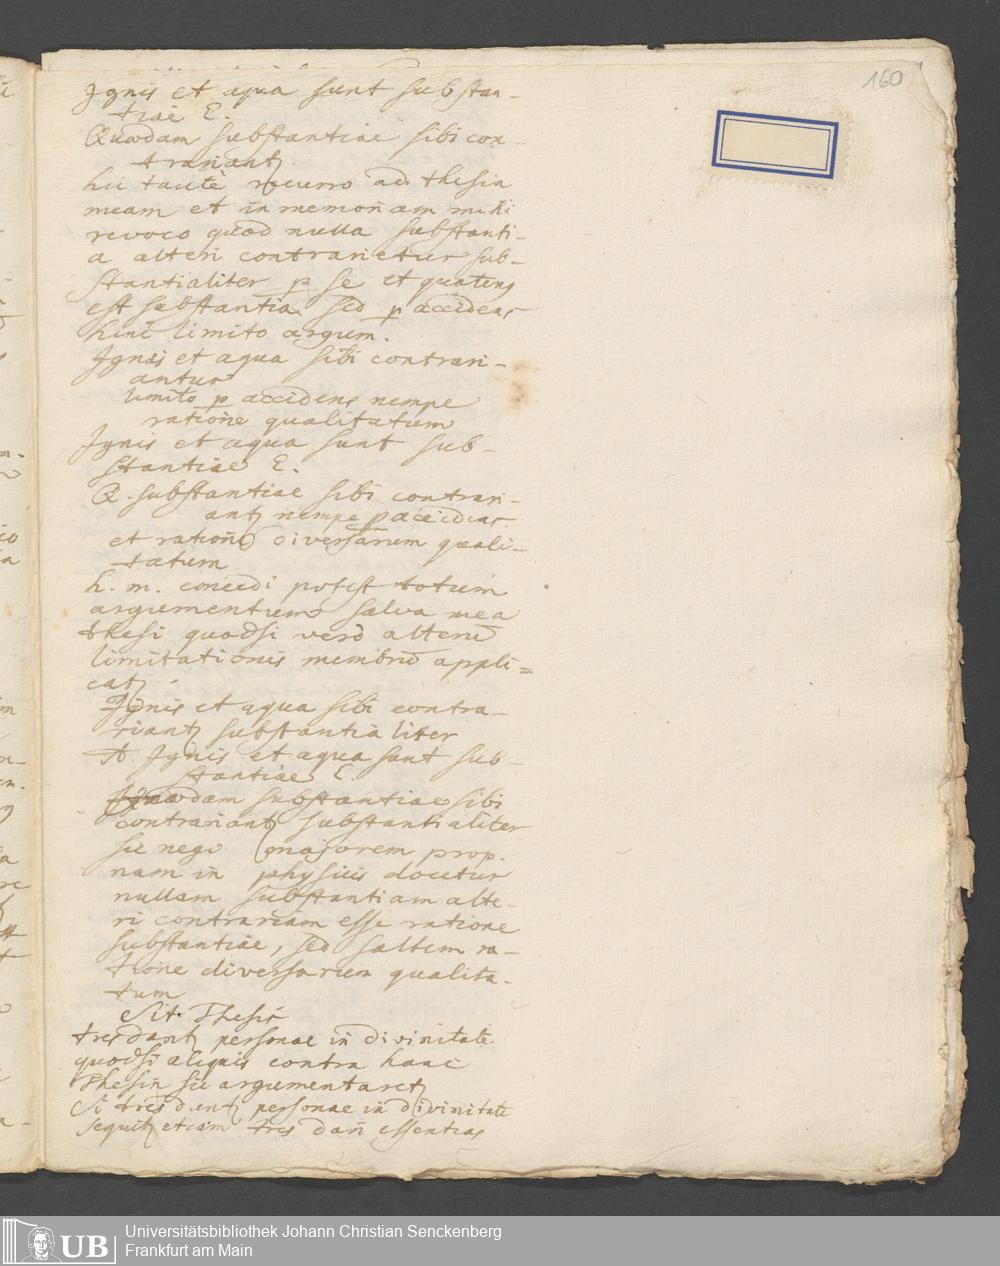 160
Ignis et aqua sunt substan-
tiae E.
Quaedam substantiae sibi con-
trariantʒ
hic tacitè recurro ad thesin
meam et in memoriam mihi
revoco quod nulla substanti-
a alteri contrarietur sub-
stantialiter p se et quateng
est substantia sed p accidens
hinc limito argum.
Ignis et aqua sibi contrari-
antur
limito p accidens nempe
ratione qualitatum
Ignis et aqua sunt sub-
stantiae E.
Q. substantiae sibi contrari-
antʒ nempe p accidens
et ratione diversarum quali-
tatum
h. m. concedi potest totum
argumentum salva mea
thesi quodsi verò alterū
limitationis membrū appli=
catʒ
Ignis et aqua sibi contra-
riantʒ substantialiter
A. Ignis et aqua sunt sub-
stantiae E.
Quaedam substantiae sibi
contrariantʒ substantialiter
sic nego majorem prop.
nam in physicis docetur
nullam substantiam alte-
ri contrariam esse ratione
substantiae, sed saltem ra-
tione diversarum qualita-
tum
Sit Thesis
tres dantʒ personae in divinitate
quodsi aliquis contra hanc
Thesin sic argumentaretʒ
Si tres dentʒ personae in divinitate
sequitʒ etiam tres dari essentias
UB
Universitätsbibliothek Johann Christian Senckenberg
Frankfurt am Main